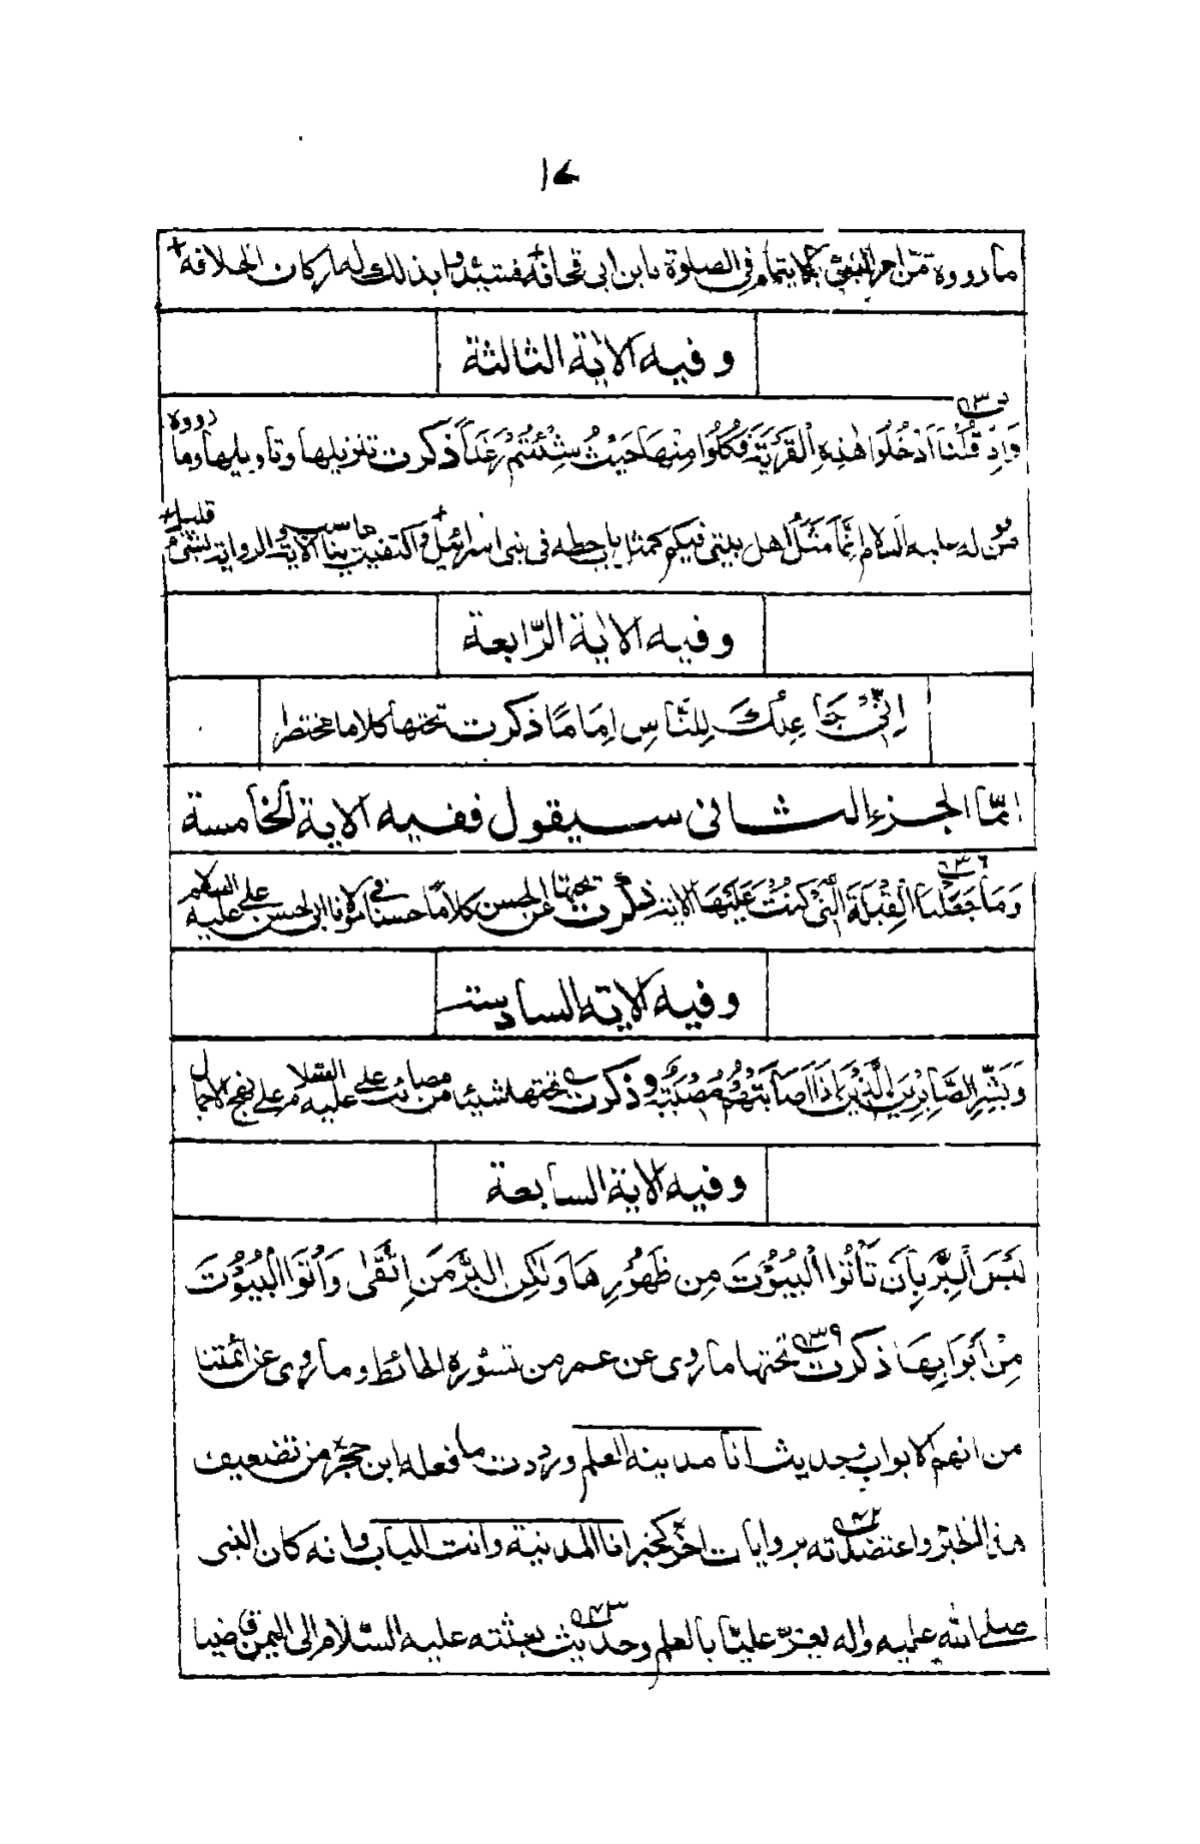 ما رووه من امر النبي بالايتمام في الصلوة بابن ابي قحافه فشيدوا بذلك له اركان الخلافه
وفيه الاية الثالثة
وَاِذْ قُلْنَا ادْخُلُوا هٰذِهِ الْقَرْيَةَ فَكُلُوا مِنْهَا حَيْثُ شِئْتُمْ رَغَداً ذكرت تنزيلها وتاويلها وما رووه
من قوله عليه السلام اِنَّمَا مَثَلُ اهل بيتي فيكم كمثل باب حطه في بني اسرائيل واكتفيت بما سب الاية والرواية بشئ قليل
وفيه الاية الرّابعة
اِنِّيْ جَاعِلُكَ لِلنَّاسِ اِمَامًا ذكرت تحتها كلاما مختصرا
امّا الجزء الثاني سيقول ففيه الاية الخامسة
وَمَا جَعَلْنَا الْقِبْلَةَ الَّتِيْ كُنْتَ عَلَيْهَا الاية ذكرت تحتها عن الحسن كلامًا حسنًا في مولانا ابي الحسن علي عليه السلام
وفيه الاية السادسة
وَبَشِّرِ الصَّابِرِيْنَ الَّذِيْنَ اِذَا اَصَابَتْهُمْ مُصِيْبَةٌ وذكرت تحتها شيئا من مصائب علي عليه السلام على نهج الاجمال
وفيه الاية السابعة
لَيْسَ الْبِرُّ بِاَنْ تَأْتُوا الْبُيُوْتَ مِنْ ظُهُوْرِهَا وَلٰكِنَّ الْبِرَّ مَنِ اتَّقٰى وَأْتُوا الْبُيُوْتَ
مِنْ اَبْوَابِهَا ذكرت تحتها ما روى عن عمر من تسوره الحائط وما روى عن ائمتنا
من انهم الابواب وحديث انا مدينة العلم ورددت ما فعله ابن حجر من تضعيف
هذا الخبر واعتضدته بروايات اخر كخبر انا المدينة وانت الباب وانه كان النبي
صلى الله عليه واله يغرّ عليّا بالعلم وحديث بعثته عليه السّلام الى اليمن قاضيا